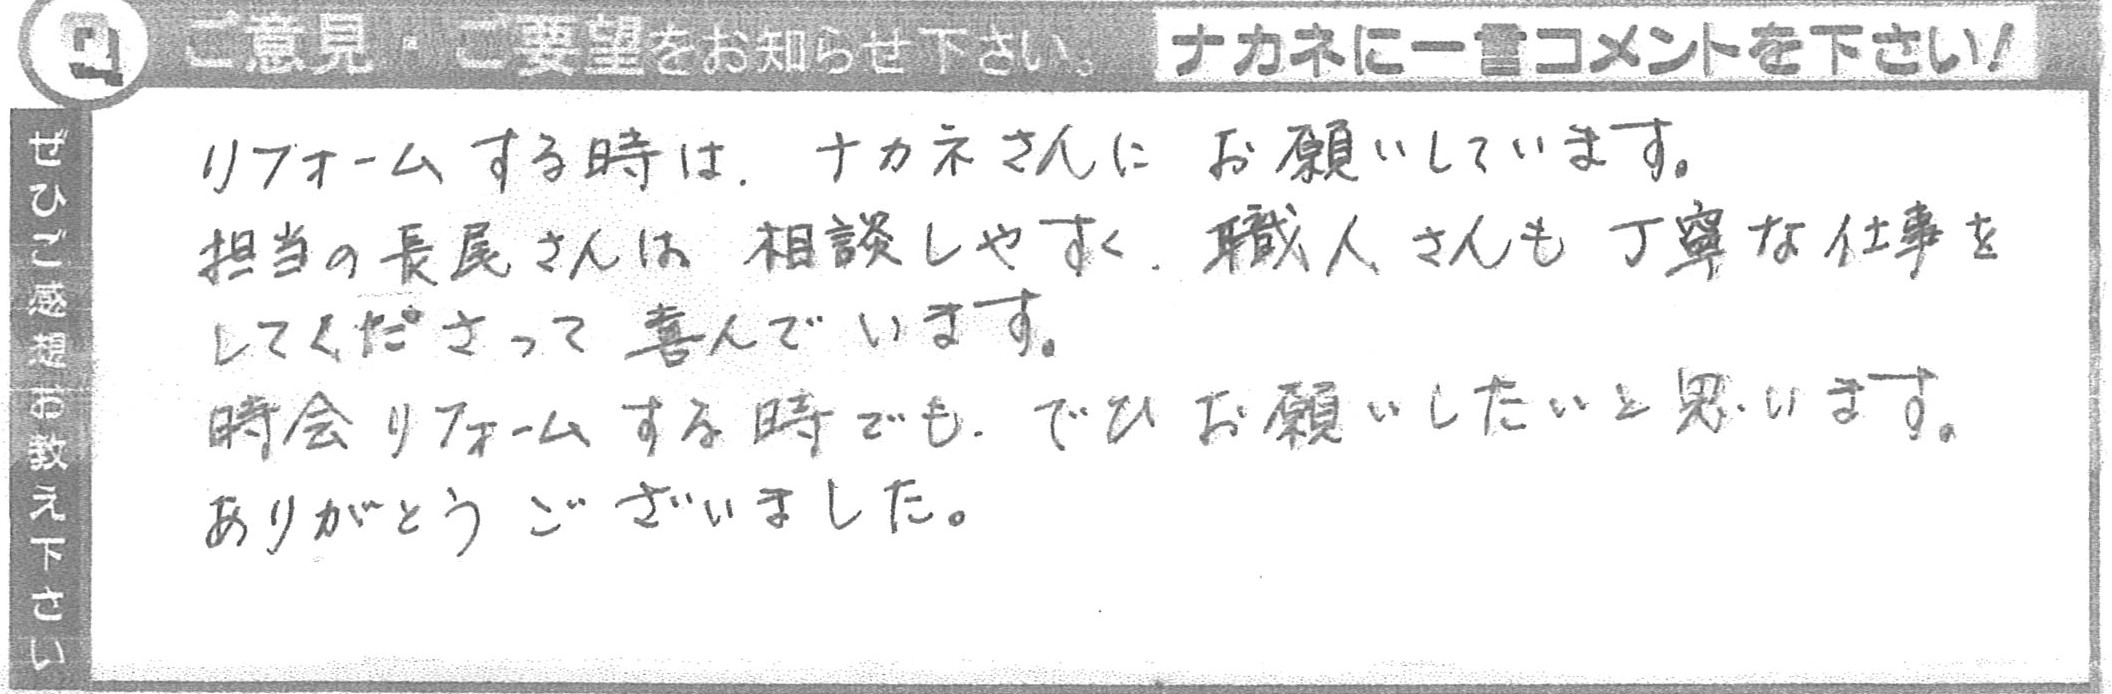 Q ご意見・ご要望をお知らせ下さい。 ナカネに一言コメントを下さい!
ぜひご感想お教え下さい
リフォームする時は、ナカネさんに お願いしています。
担当の長尾さんは 相談しやすく、職人さんも丁寧な仕事を
してくださって喜んでいます。
時会リフォームする時でも、でひお願いしたいと思います。
ありがとうございました。